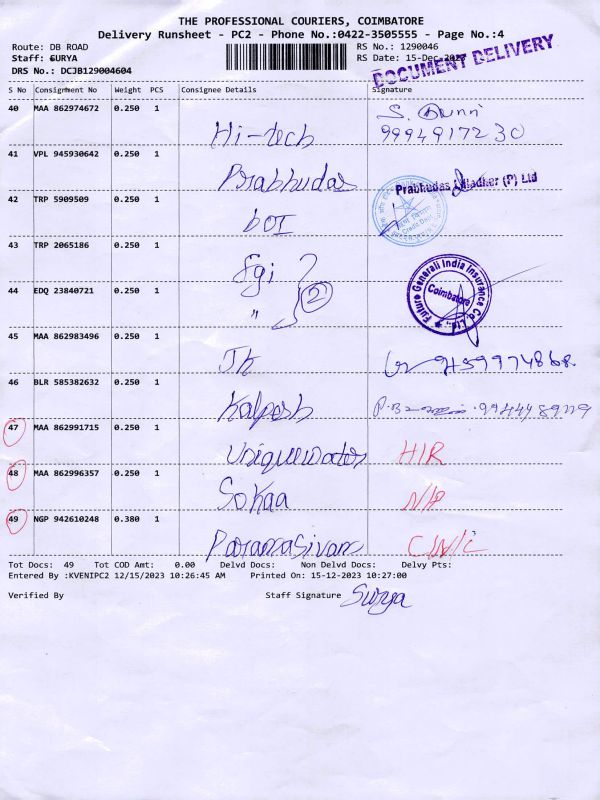 THE PROFESSIONAL COURIERS, COIMBATORE
Delivery Runsheet - PC2 - Phone No.:0422-3505555 - Page No.:4
Route: DB ROAD RS No.: 1290046
Staff: SURYA RS Date: 15-Dec-2023
DRS No.: DCJB129004604 DOCUMENT DELIVERY
S No Consignment No Weight PCS Consignee Details Signature
40 MAA 862974672 0.250 1 Hi-tech S.
9994917230
41 VPL 945930642 0.250 1 Prabhudas Prabhudas Lilladher (P) Ltd
42 TRP 5909509 0.250 1 BOI
43 TRP 2065186 0.250 1 Fgi
44 EDQ 23840721 0.250 1 " 2 Future Generali India Insurance Co. Ltd., Coimbatore
45 MAA 862983496 0.250 1 JK
46 BLR 585382632 0.250 1 Kalpesh
47 MAA 862991715 0.250 1 Uniquewater HIR
48 MAA 862996357 0.250 1 Sokaa N/P
49 NGP 942610248 0.380 1 Paramasivam
Tot Docs: 49 Tot COD Amt: 0.00 Delvd Docs: Non Delvd Docs: Delvy Pts:
Entered By :KVENIPC2 12/15/2023 10:26:45 AM Printed On: 15-12-2023 10:27:00
Verified By Staff Signature Surya